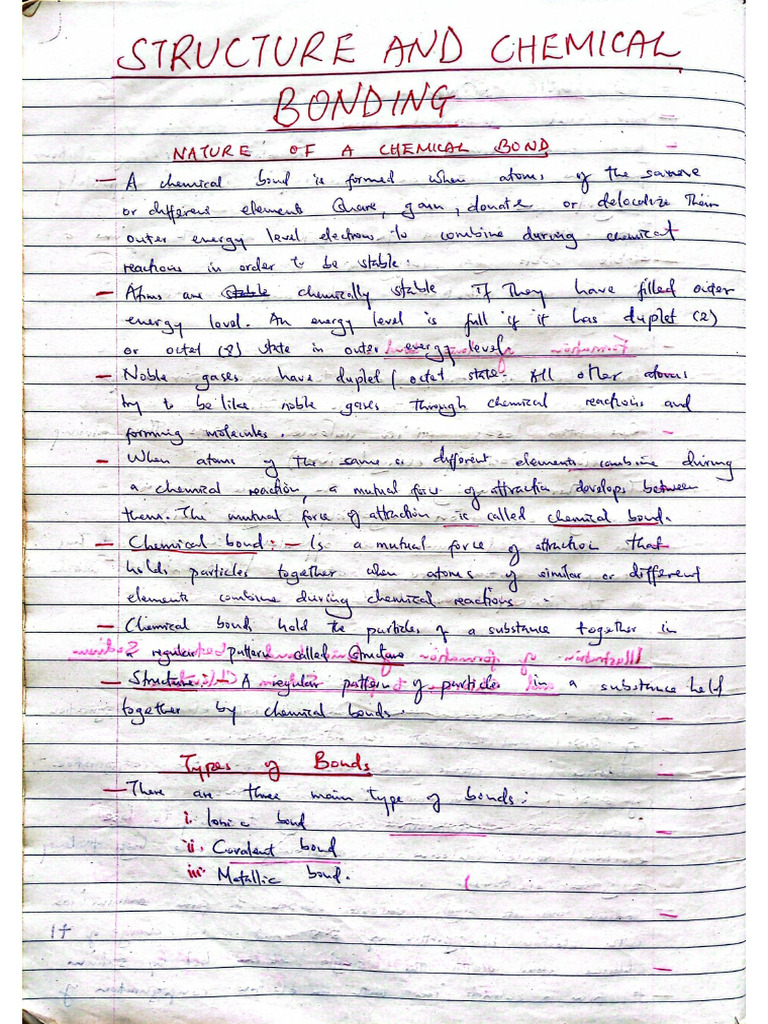 STRUCTURE AND CHEMICAL
BONDING
NATURE OF A CHEMICAL BOND
– A chemical bond is formed when atoms of the same
or different elements share, gain, donate or delocalize their
outer energy level electrons to combine during chemical
reactions in order to be stable.
– Atoms are stable chemically stable if they have filled outer
energy level. An energy level is full if it has duplet (2)
or octet (8) state in outer energy level
– Noble gases have duplet / octet state. All other atoms
try to be like noble gases through chemical reactions and
forming molecules.
– When atoms of the same or different elements combine during
a chemical reaction, a mutual force of attraction develops between
them. The mutual force of attraction is called chemical bond.
– Chemical bond: – Is a mutual force of attraction that
holds particles together when atoms of similar or different
elements combine during chemical reactions.
– Chemical bonds hold the particles of a substance together in
a regular pattern called structure
– Structure: – A regular pattern of particles in a substance held
together by chemical bonds.
Types of Bonds
– There are three main type of bonds:
i. Ionic bond
ii. Covalent bond
iii. Metallic bond.